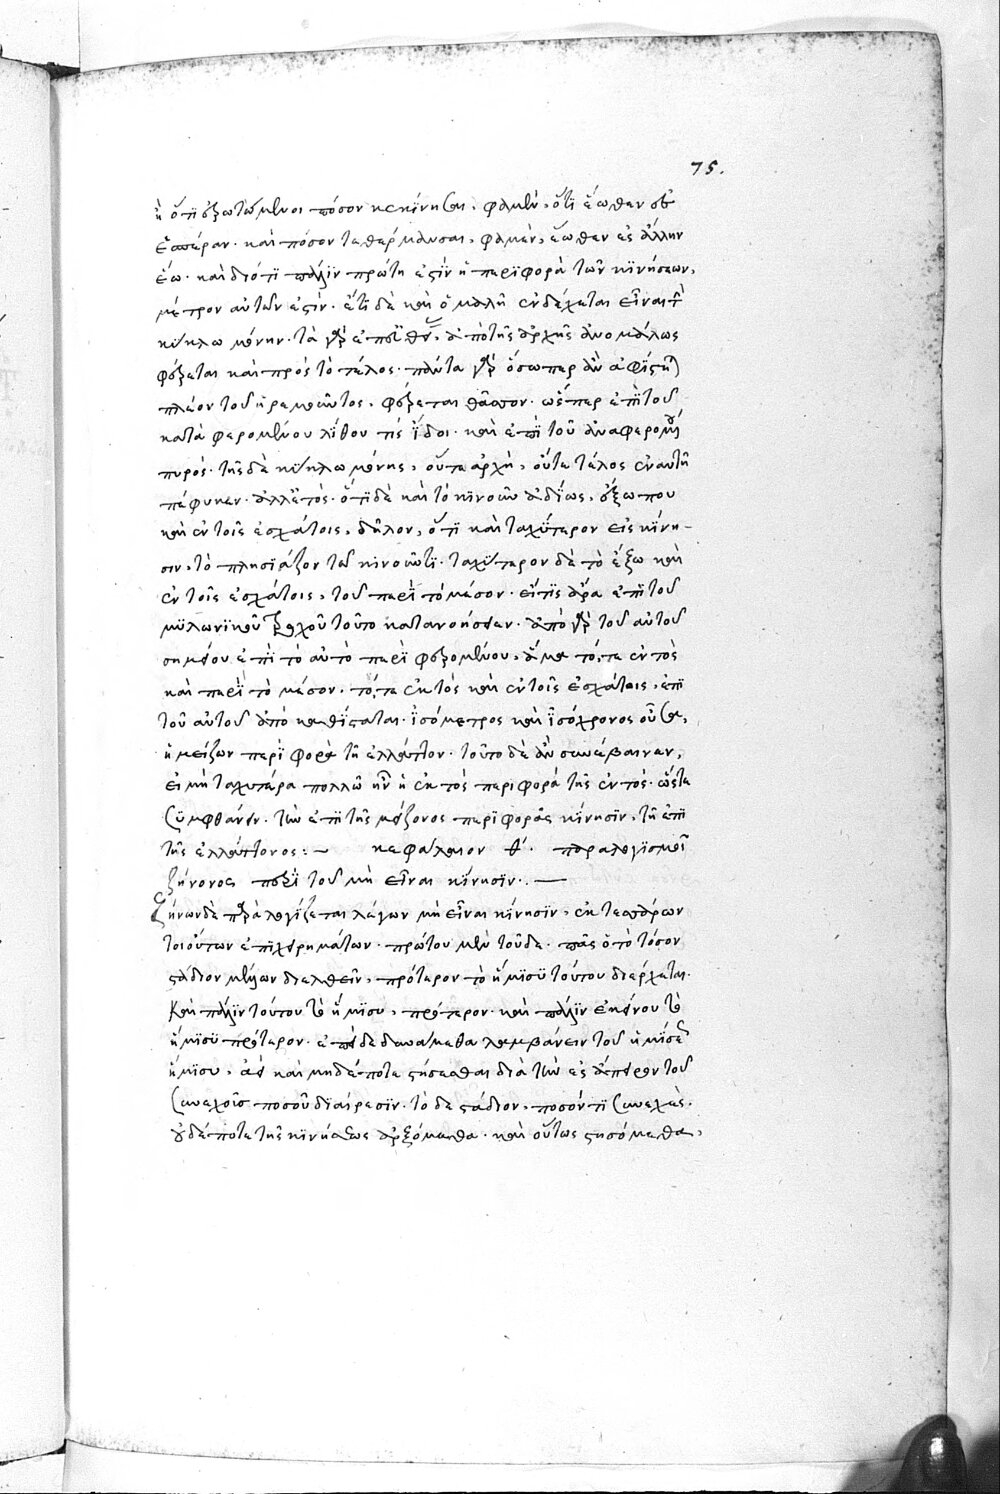 75.
ἢ ὅτι ἐρωτώμενοι πόσον κεκίνησαι, φαμὲν, ὅτι ἕωθεν ἐς
ἑσπέραν. καὶ πόσον τεθέρμανσαι, φαμὲν, ἕωθεν ἐς ἄλλην
ἕω. καὶ διότι πάλιν πρώτη ἐστὶν ἡ περιφορὰ τῶν κινήσεων,
μέτρον αὐτῶν ἐστίν. ἔτι δὲ καὶ ὁμαλῆ ἐνδέχεται εἶναι τὴν
κύκλω μόνην. τὰ γὰρ ἐπ' εὐθείας, ἀπὸ τῆς ἀρχῆς ἀνομάλως
φέρεται καὶ πρὸς τὸ τέλος. πάντα γὰρ ὅσωπερ ἂν ἀφίστηται
πλέον τοῦ ἠρεμοῦντος, φέρεται θᾶττον. ὥσπερ ἐπὶ τοῦ
καταφερομένου λίθου τίς ἴδοι. καὶ ἐπὶ τοῦ ἀναφερομένου
πυρός. τῆς δὲ κύκλω μόνης, οὔτε ἀρχὴ, οὔτε τέλος ἐν αὐτῆ
πέφυκεν. ἀλλ' ἐκτός. ὅτι δὲ καὶ τὸ κινοῦν ἀϊδίως, ἔξω που
καὶ ἐν τοῖς ἐσχάτοις, δῆλον, ὅτι καὶ ταχύτερον εἰς κίνη-
σιν, τὸ πλησιάζον τῶ κινοῦντι. ταχύτερον δὲ τὸ ἔξω καὶ
ἐν τοῖς ἐσχάτοις, τοῦ περὶ τὸ μέσον. εἴ τις ἄρα ἐπὶ τοῦ
μυλωνικοῦ τροχοῦ τοῦτο κατανοήσειεν. ἀπὸ γὰρ τοῦ αὐτοῦ
σημείου ἐπὶ τὸ αὐτὸ περιφερομένου, ἅμα τό, τε ἐντὸς
καὶ περὶ τὸ μέσον. τό, τε ἐκτὸς καὶ ἐν τοῖς ἐσχάτοις, ἐπὶ
τοῦ αὐτοῦ ἀποκαθίσταται. ἰσόμετρος καὶ ἰσόχρονος οὖσα,
ἡ μείζων περιφορὰ τῆ ἐλλάττονι. τοῦτο δὲ ἂν συνέβαινεν,
εἰ μὴ ταχυτέρα πολλῶ ἦν ἡ ἐκτὸς περιφορὰ τῆς ἐντός. ὥστε
συμφθάνειν. τὴν ἐπὶ τῆς μείζονος περιφορᾶς κίνησιν, τῆ ἐπὶ
τῆς ἐλλάττονος: – κεφάλαιον θ΄. παραλογισμοὶ
ζήνωνος περὶ τοῦ μὴ εἶναι κίνησιν. —
Ζήνων δὲ παραλογίζεται λέγων μὴ εἶναι κίνησιν, ἐκ τεσσάρων
τοιούτων ἐπιχειρημάτων. πρῶτον μὲν τοῦδε. πᾶς ὁ τὸ τόσον
στάδιον μέλλων διελθεῖν, πρότερον τὸ ἥμισυ τούτου διέρχεται.
καὶ πάλιν τούτου τὸ ἥμισυ, πρότερον. καὶ πάλιν ἐκείνου τὸ
ἥμισυ πρότερον. ἐπεὶ δὲ δυνάμεθα λαμβάνειν τοῦ ἡμίσεος
ἥμισυ, ἀεὶ καὶ μηδέποτε στήσεσθαι διὰ τὴν ἐς ἄπειρον τοῦ
συνεχοῦς ποσοῦ διαίρεσιν. τὸ δὲ στάδιον, ποσόν τι συνεχές.
οὐδέποτε τῆς κινήσεως ἀρξόμεθα. καὶ οὕτως στησόμεθα,